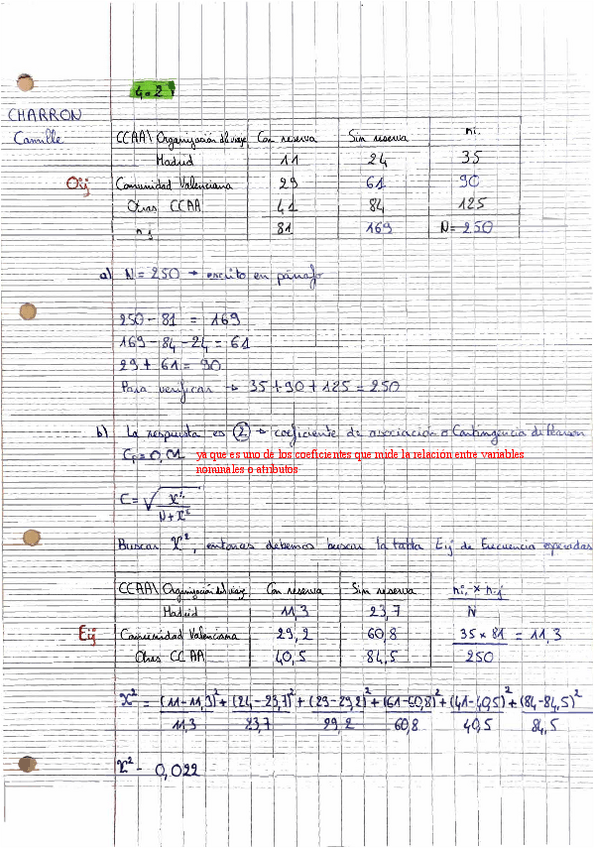 4.2
CHARRON
Camille
CCAA\ Organización del viaje Con reserva Sin reserva ni.
Madrid 11 24 35
Oij Comunidad Valenciana 29 61 90
Otras CCAA 41 84 125
n.j 81 169 N= 250
a) N = 250 → escrito en párrafo
250 - 81 = 169
169 - 84 - 24 = 61
29 + 61 = 90
Para verificar → 35 + 90 + 125 = 250
b) La respuesta es ② → coeficiente de asociación o Contingencia de Pearson
Cp = 0,01 ya que es uno de los coeficientes que mide la relación entre variables
nominales o atributos
C = √ X²
N + X²
Buscar X², entonces debemos buscar la tabla Eij de Frecuencia esperadas
CCAA\ Organización del viaje Con reserva Sin reserva ni. × n.j
Madrid 11,3 23,7 N
Eij Comunidad Valenciana 29,2 60,8 35 × 81 = 11,3
Otras CCAA 40,5 84,5 250
X² = (11-11,3)² + (24-23,7)² + (29-29,2)² + (61-60,8)² + (41-40,5)² + (84-84,5)²
11,3 23,7 29,2 60,8 40,5 84,5
X² = 0,022